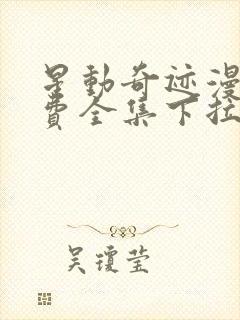 星動奇迹漫
费全集下拉
吴琼莹